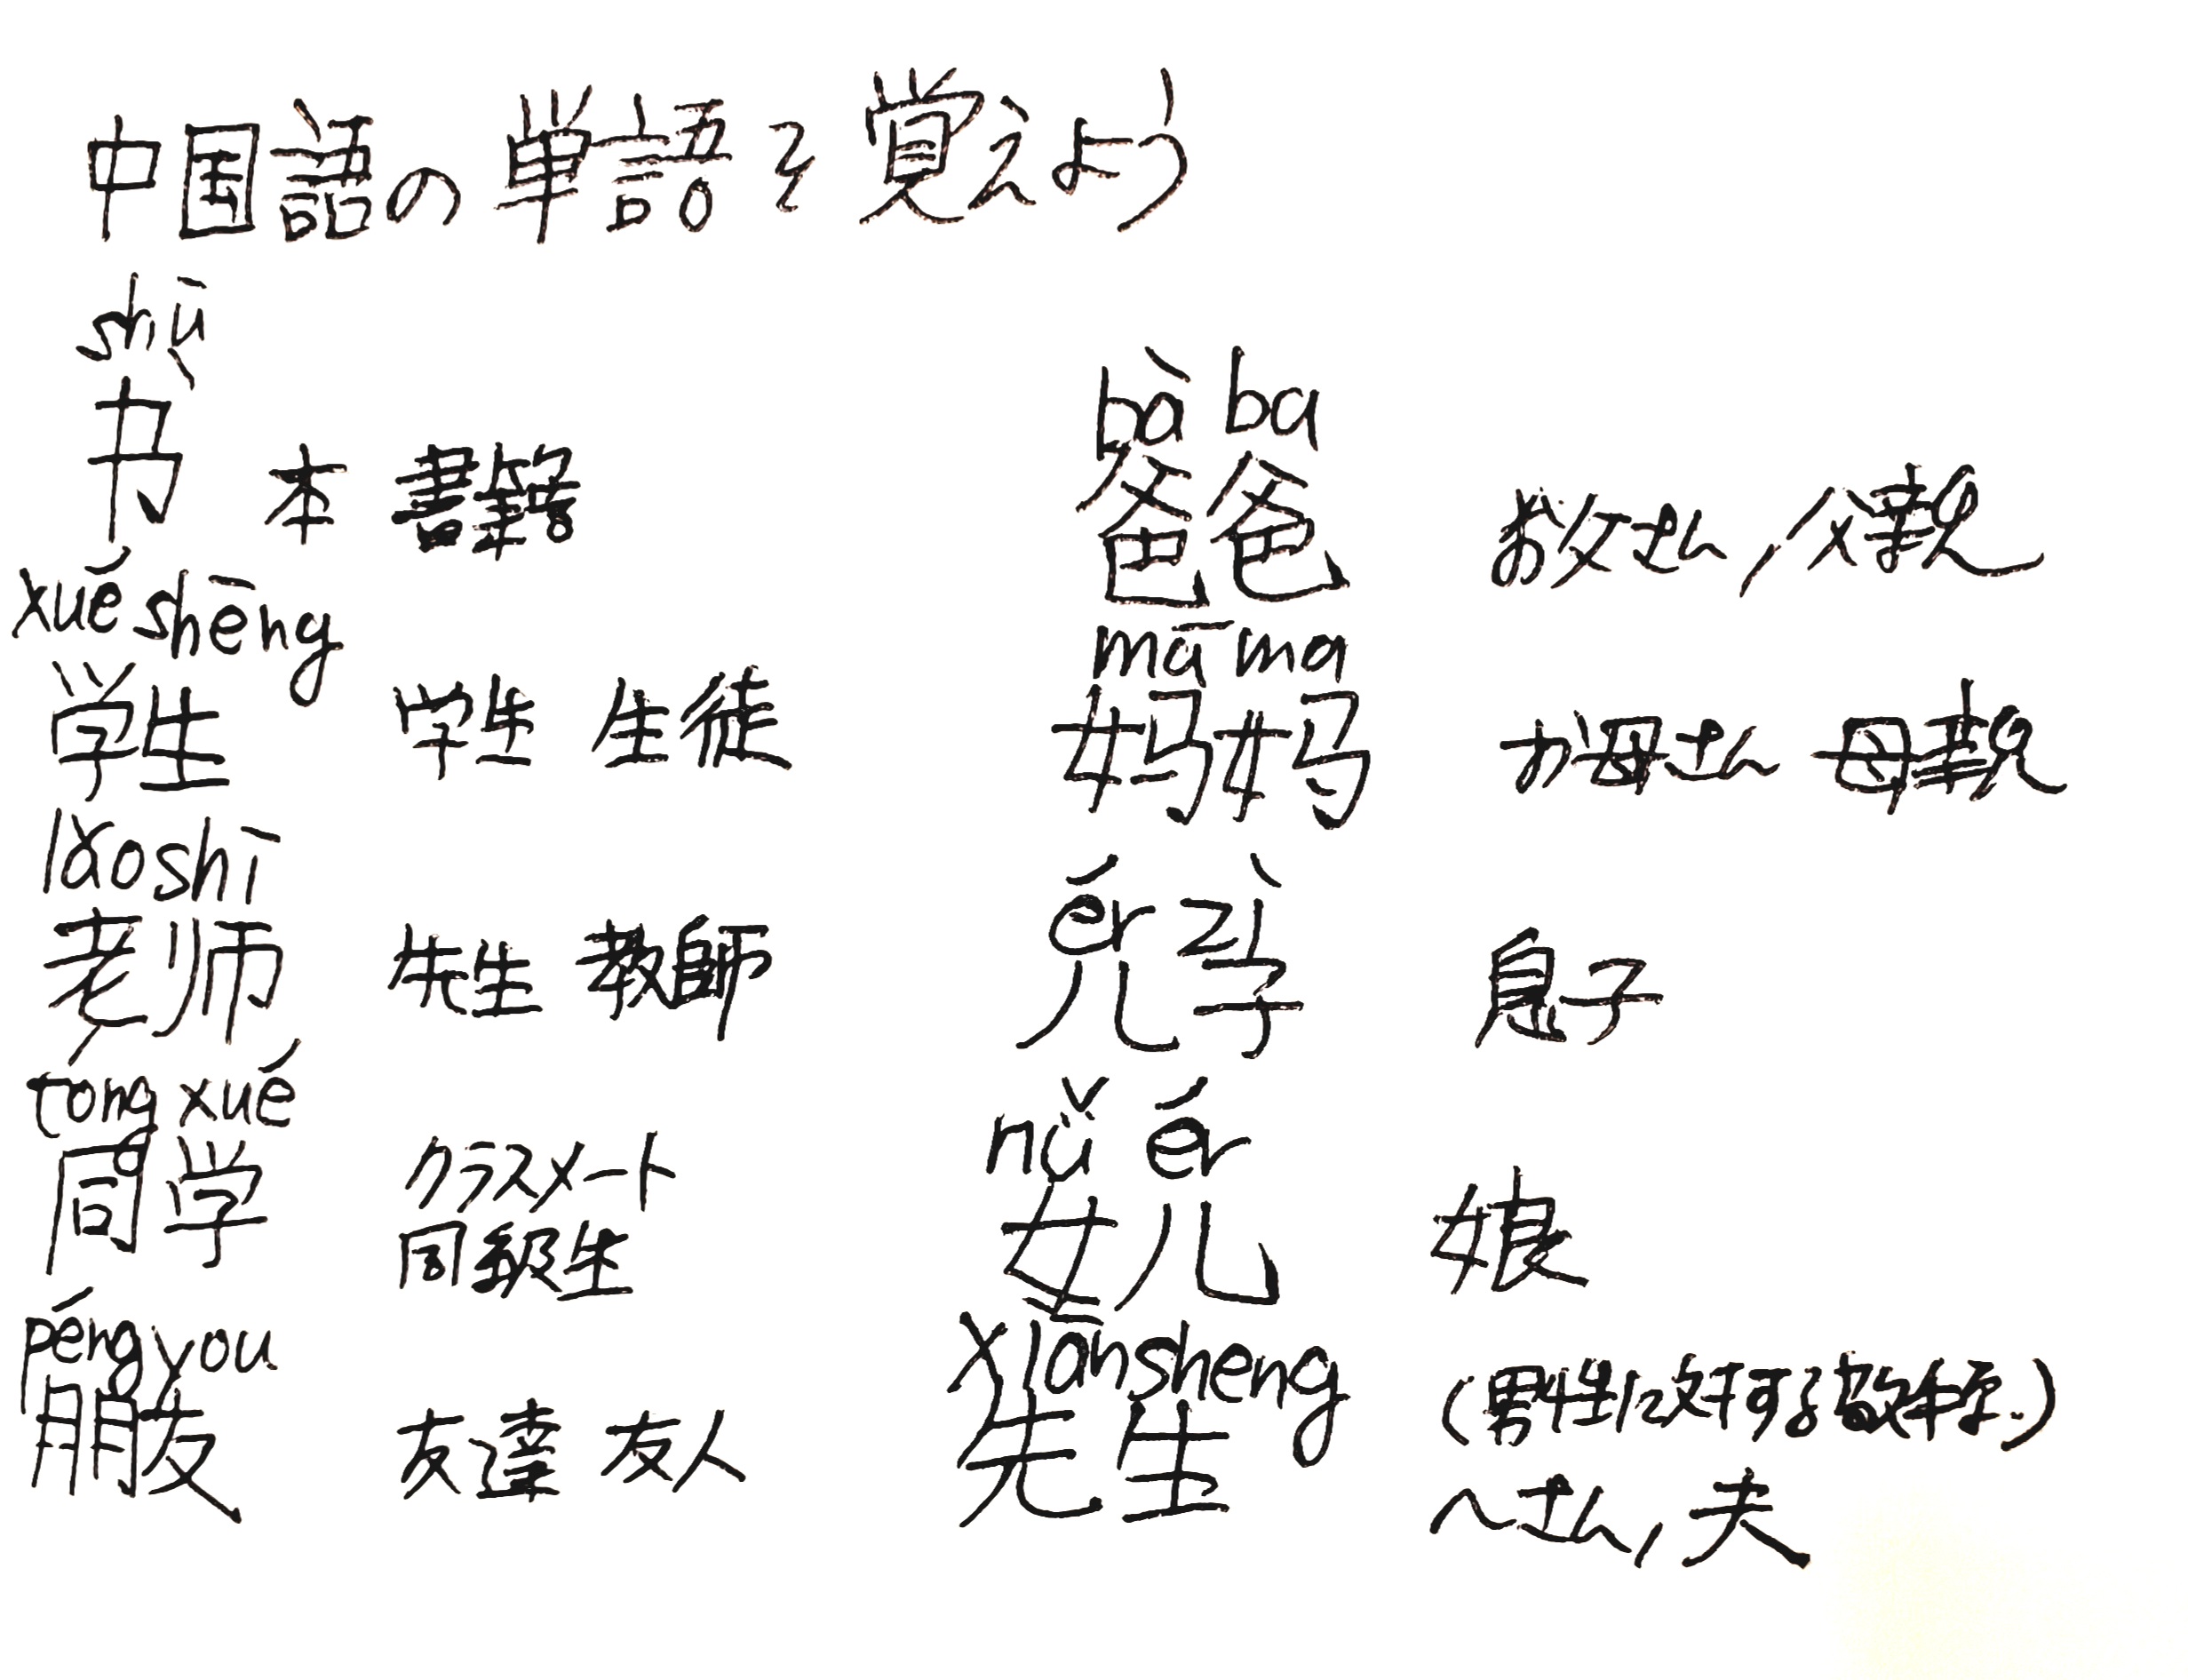 中国語の単語を覚えよう
shū
书 本 書籍
xué shēng
学生 学生 生徒
lǎoshī
老师 先生 教師
tong xué
同学 クラスメート
同級生
péngyou
朋友 友達 友人
bà ba
爸爸 お父さん，父親
mā ma
妈妈 お母さん 母親
ér zì
儿子 息子
nǚ ér
女儿 娘
xiānsheng
先生 (男性に対する敬称.)
～さん，夫